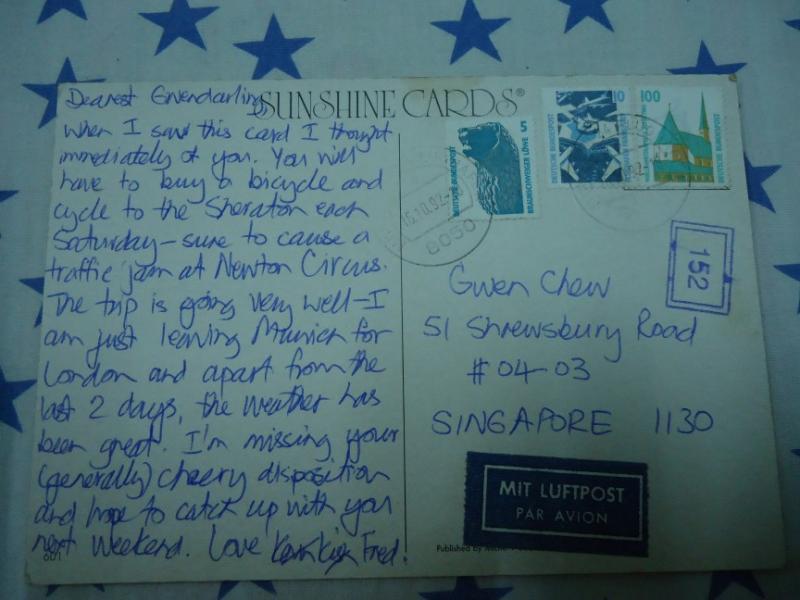 SUNSHINE CARDS®
Dearest Gwendarling
when I saw this card I thought
immediately of you. You will
have to buy a bicycle and
cycle to the Sheraton each
Saturday – sure to cause a
traffic jam at Newton Circus.
The trip is going very well – I
am just leaving Munich for
London and apart from the
last 2 days, the weather has
been great. I'm missing your
(generally) cheery disposition
and hope to catch up with you
next weekend. Love Fred!
601
5
DEUTSCHE BUNDESPOST
BRAUNSCHWEIGER LÖWE
10
DEUTSCHE BUNDESPOST
100
DEUTSCHE BUNDESPOST
16.10.92
8050
152
Gwen Chew
51 Shrewsbury Road
#04-03
SINGAPORE 1130
MIT LUFTPOST
PAR AVION
Published by